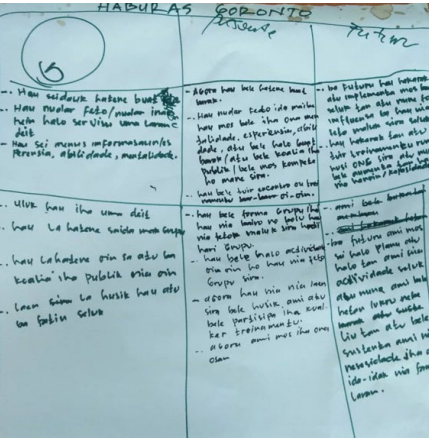 HABURAS GORONTO
presente
Futuru
- Hau seidauk hatene buat
- Hau nudar feto/nudar inan
hela halo servisu uma laran
deit
- Hau sei menus informasaun/es
perensia, abilidade, mentalidade.
- Agora hau bele hatene buat
barak.
- Hau nudar feto ida maibe
hau mos bele iha ona men
talidade, esperiensia, abili
dade, atu bele halo buat
barak/atu bele koalia iha
publik/bele mos kompete
ho mane sira.
- hau bele tuir encontro ou trei
- ba futuru hau hakarak
atu implementa mos ba
seluk tan atu nune fo
influensia ba hau nia
feto maluk sira seluk
- hau hakarak tan atu
tuir treinamentu ruma
husi ONG sira atu nune
bele aumenta tan hau
- Uluk hau iha uma deit
- hau La hatene saida mak Grupu
- hau La hatene oin sa atu ba
koalia iha publik oin oin
- laen sira La husik hau atu
ba fatin seluk
- hau bele forma Grupu iha
hau nia
feto maluk sira hodi
hari Grupu.
- hau bele halo actividade
oin oin ho hau nia feto
Grupu sira.
- agora hau nia nia laen
sira bele husik ami atu
bele partisipa iha kual-
ker treinamentu.
- agora ami mos iha ona
osan
- ami bele
- ba futuru ami mos
sei halo planu atu
halo tan ami nia
actividade seluk
atu nune ami bele
hetan lukru nebe
liu tan atu bele
sustenta ami nia
nesesidade iha
ida-idak nia
laran.